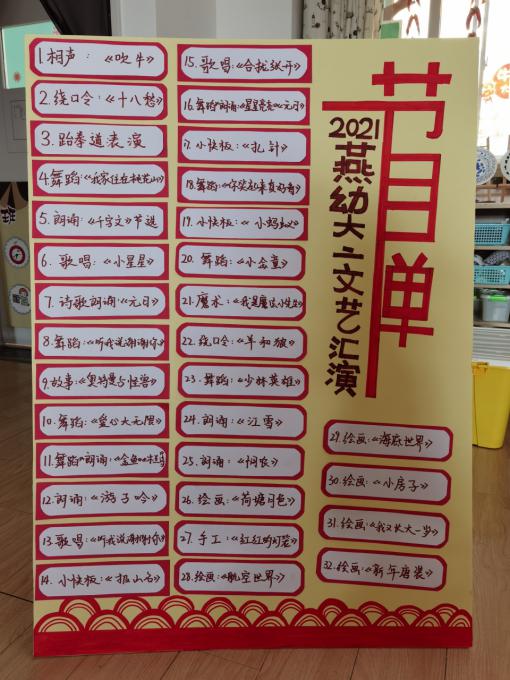 节目单
2021燕幼大二文艺汇演
1.相声：《吹牛》
2.绕口令：《十八愁》
3.跆拳道表演
4.舞蹈：《我家住在桃花山》
5.朗诵：《千字文》节选
6.歌唱：《小星星》
7.诗歌朗诵：《元日》
8.舞蹈：《听我说谢谢你》
9.故事：《奥特曼与怪兽》
10.舞蹈：《爱心大无限》
11.舞蹈朗诵：《金鱼》
12.朗诵：《游子吟》
13.歌唱：《听我说谢谢你》
14.小快板：《报山名》
15.歌唱：《合拢张开》
16.舞蹈朗诵：《元日》
17.小快板：《扎针》
18.舞蹈：《你笑起来真好看》
19.小快板：《小蚂蚁》
20.舞蹈：《小金童》
21.魔术：《我是魔法小先生》
22.绕口令：《羊和狼》
23.舞蹈：《少林英雄》
24.朗诵：《江雪》
25.朗诵：《悯农》
26.绘画：《荷塘月色》
27.手工：《红红的灯笼》
28.绘画：《航空世界》
29.绘画：《海底世界》
30.绘画：《小房子》
31.绘画：《我又长大一岁》
32.绘画：《新年唐装》
班